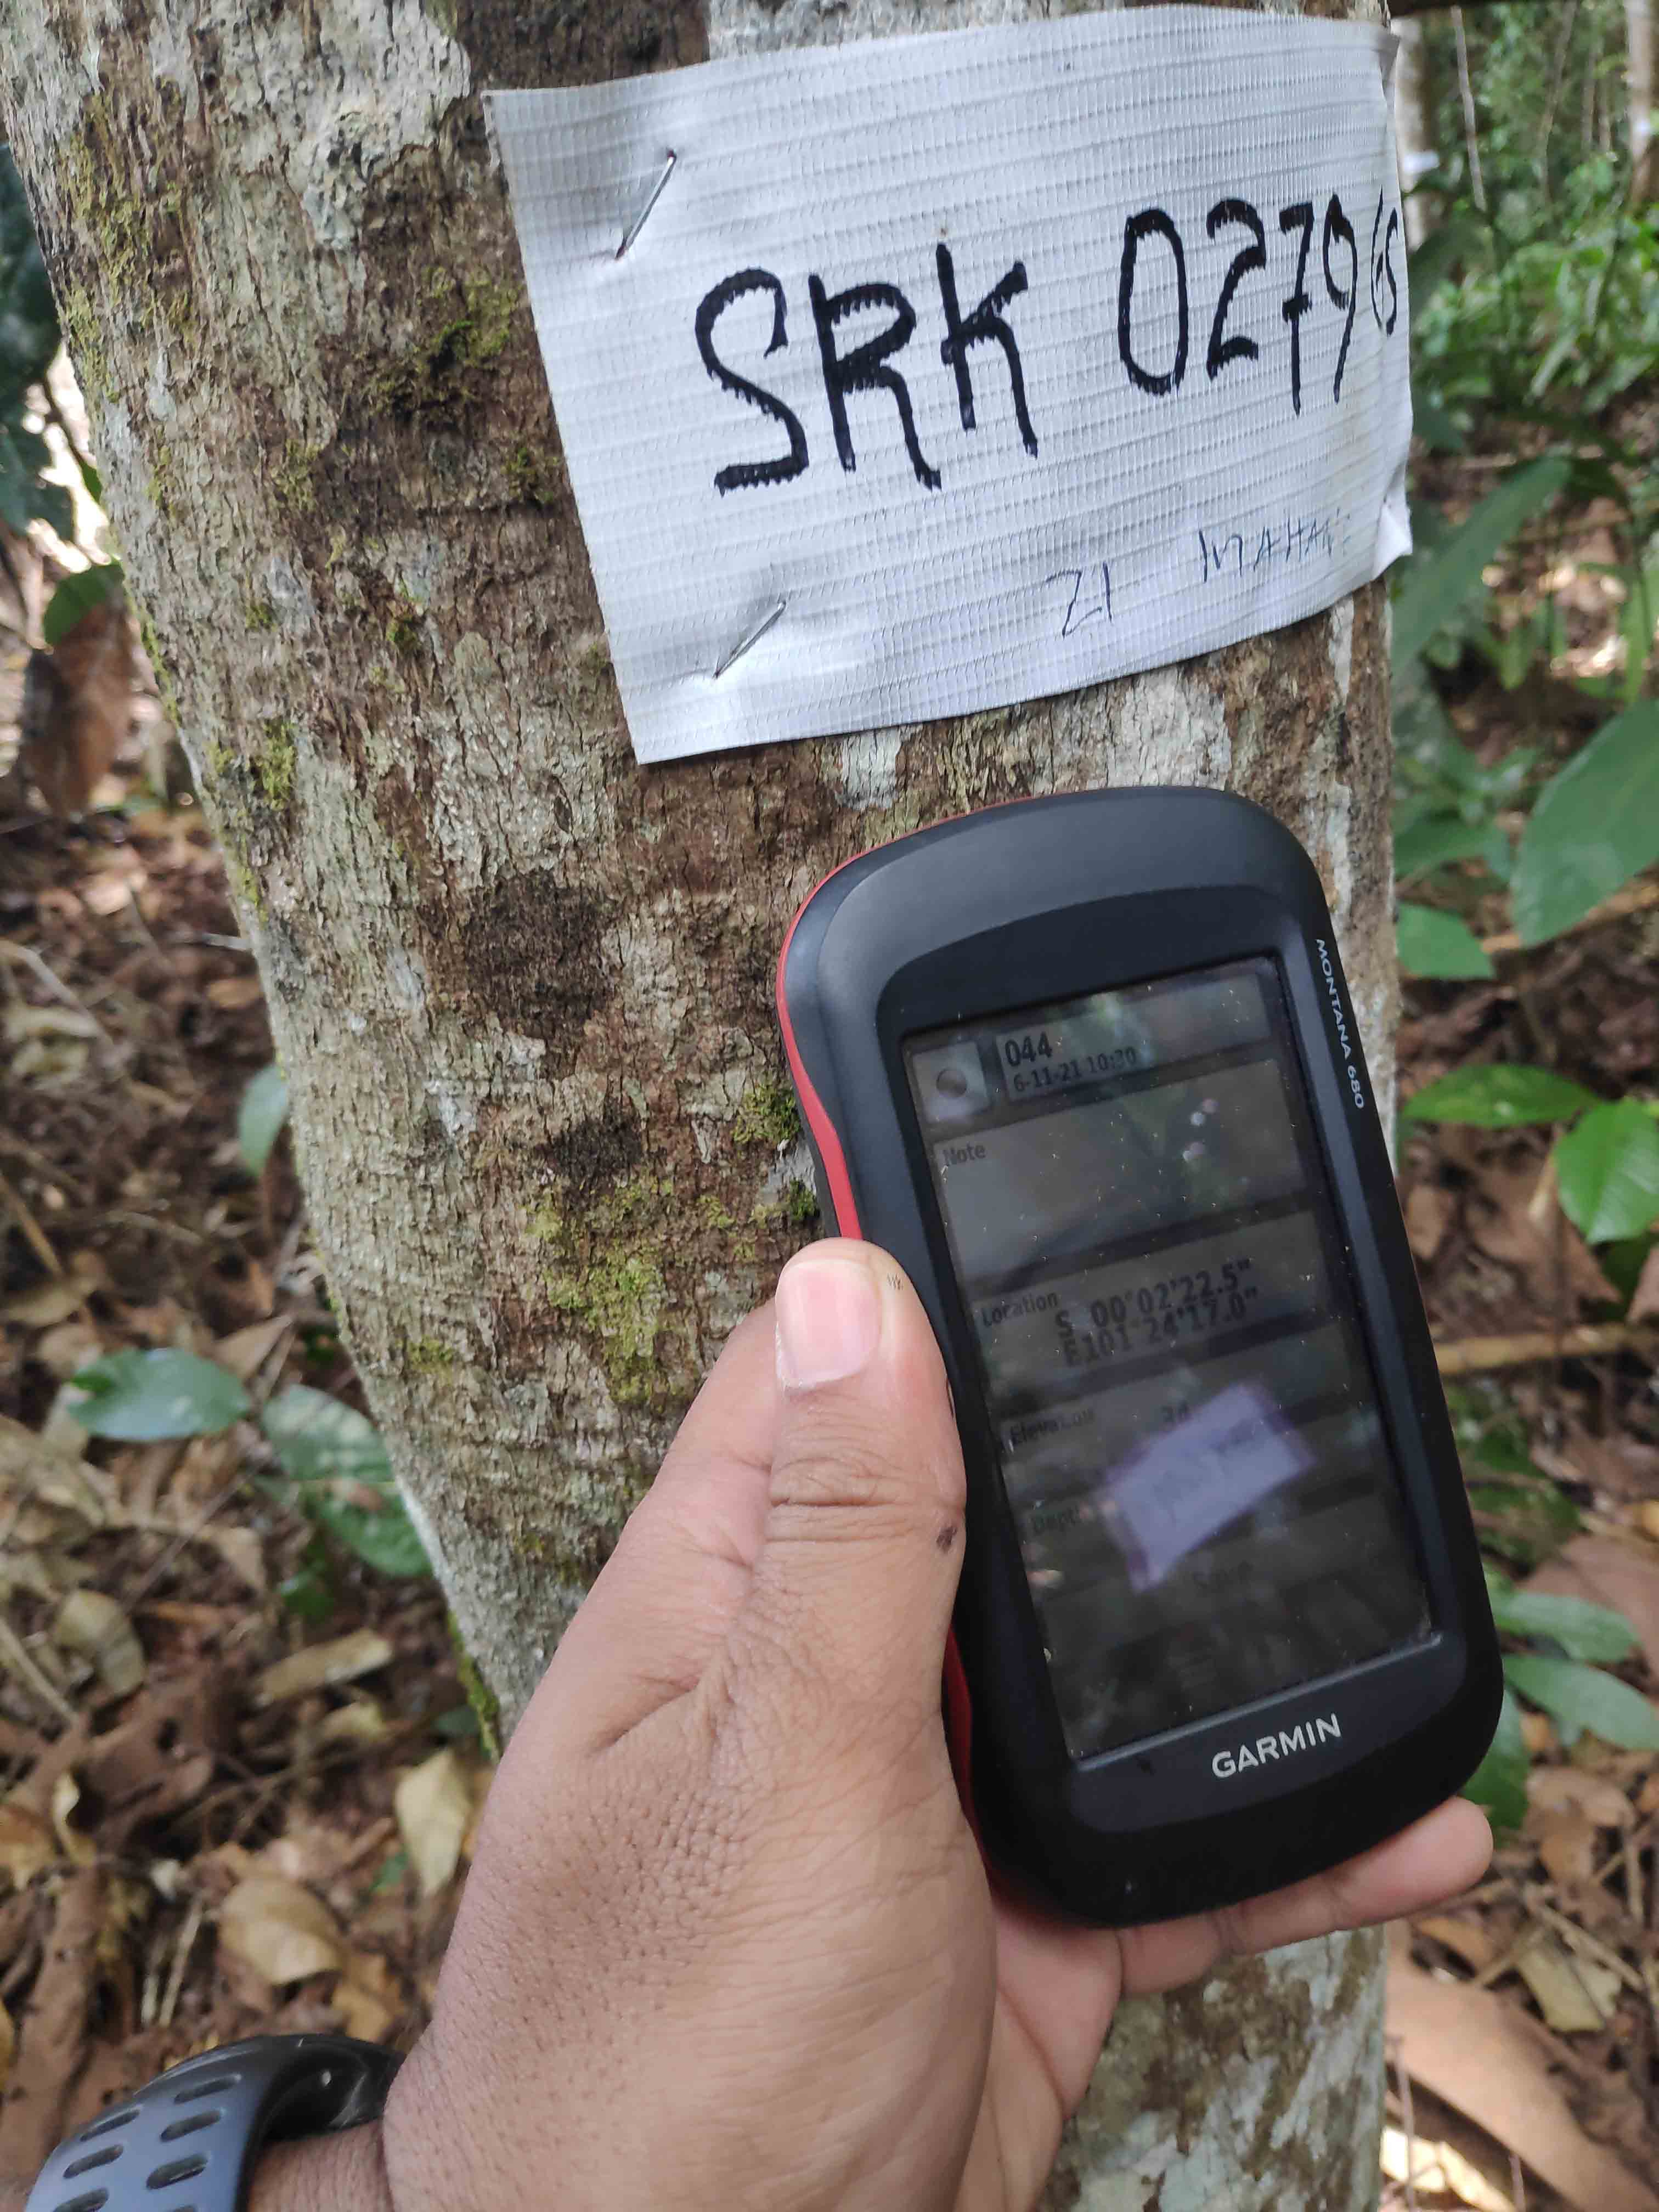 SRK 0279
21
MONTANA 680
044
6-11-21 10:30
Note
Location
S 00°02'22.5"
E101°24'17.0"
Elevation
Depth
Save
GARMIN